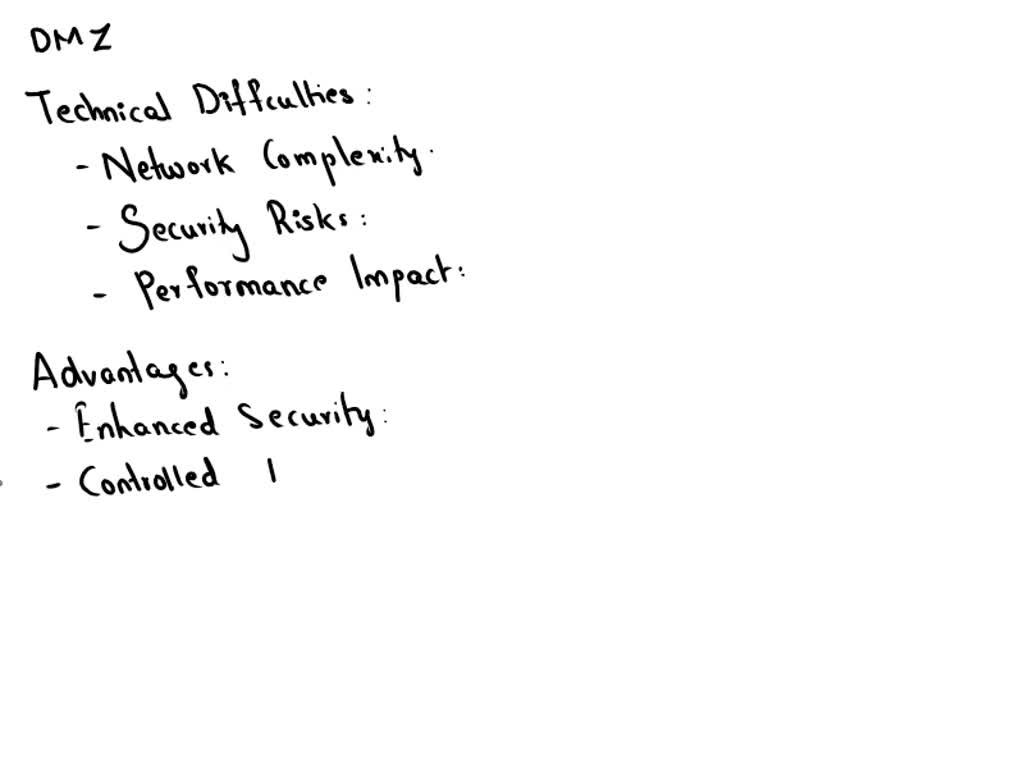 DMZ
Technical Diffculties:
- Network Complexity.
- Security Risks:
- Performance Impact:
Advantages:
- Enhanced Security:
- Controlled